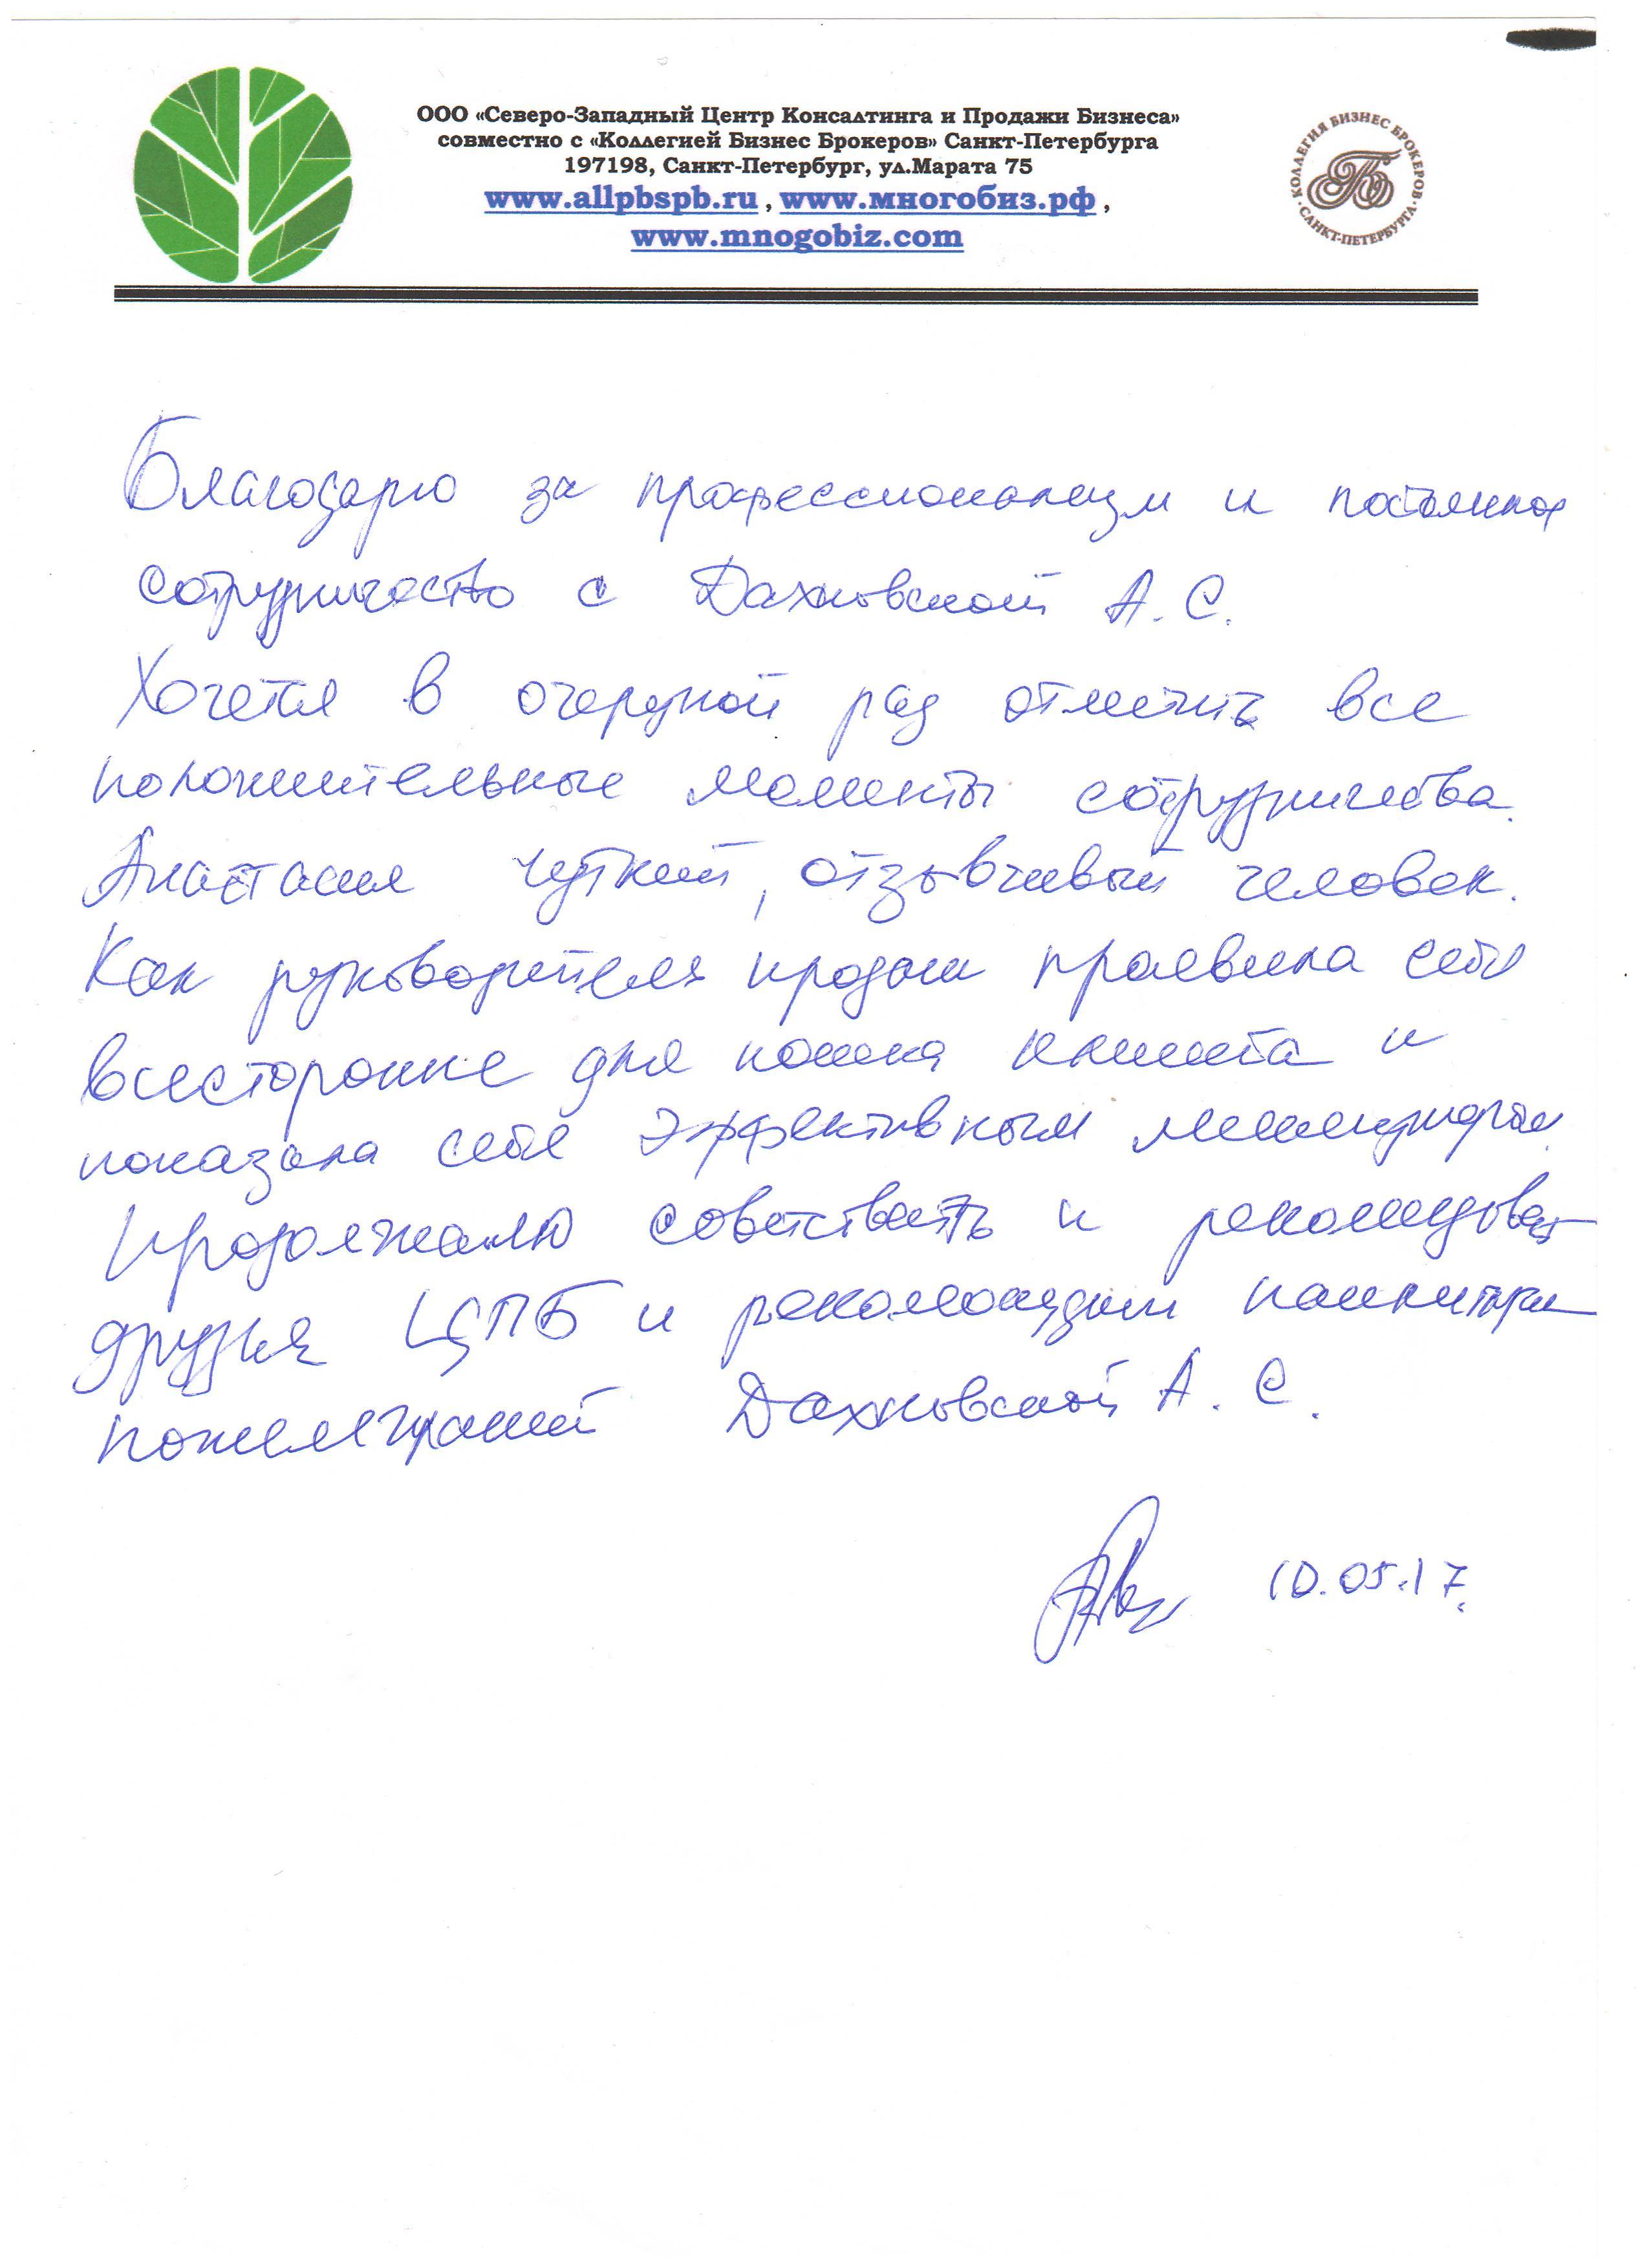 ООО «Северо-Западный Центр Консалтинга и Продажи Бизнеса»
совместно с «Коллегией Бизнес Брокеров» Санкт-Петербурга
197198, Санкт-Петербург, ул.Марата 75
www.allpbspb.ru , www.многобиз.рф ,
www.mnogobiz.com
КОЛЛЕГИЯ БИЗНЕС БРОКЕРОВ • САНКТ-ПЕТЕРБУРГА •
Благодарю за профессионализм и постоянное
сотрудничество с Дахновской А. С.
Хочется в очередной раз отметить все
положительные моменты сотрудничества.
Анастасия чуткий, отзывчивый человек.
Как руководитель продаж проявила себя
всесторонне для клиента и
показала себя эффективным менеджером.
Продолжаю советовать и рекомендовать
друзья ЦПБ и
Дахновской А. С.
10.05.17.